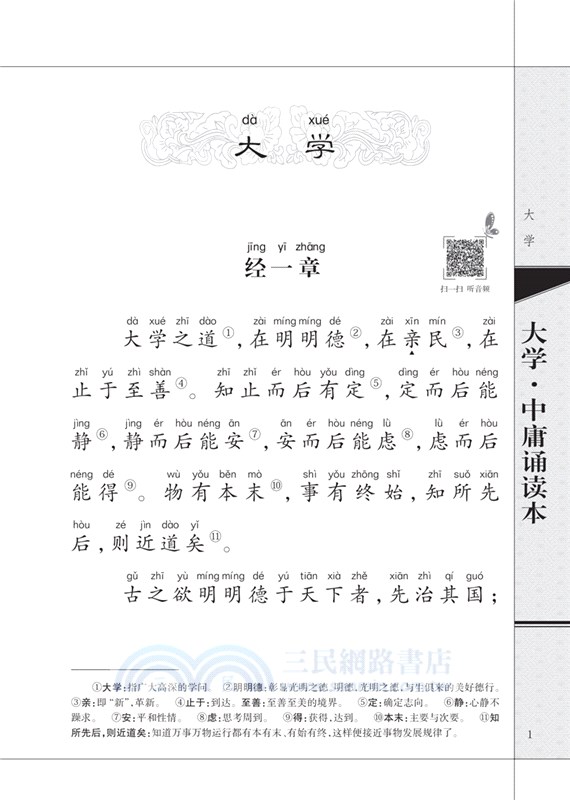 dà xué
大学
jīng yī zhāng
经一章
扫一扫 听音频
dà xué zhī dào zài míng míng dé zài xīn mín zài
大学之道①，在明明德②，在亲民③，在
zhǐ yú zhì shàn zhǐ ér hòu yǒu dìng dìng ér hòu néng
止于至善④。知止而后有定⑤，定而后能
jìng jìng ér hòu néng ān ān ér hòu néng lǜ lǜ ér hòu
静⑥，静而后能安⑦，安而后能虑⑧，虑而后
néng dé wù yǒu běn mò shì yǒu zhōng shǐ zhī suǒ xiān
能得⑨。物有本末⑩，事有终始，知所先
hòu zé jìn dào yǐ
后，则近道矣⑪。
gǔ zhī yù míng míng dé yú tiān xià zhě xiān zhì qí guó
古之欲明明德于天下者，先治其国；
三民網路書店
①大学：指广大高深的学问。 ②明明德：彰显光明之德。明德，光明之德，与生俱来的美好德行。
③亲：即“新”，革新。 ④止于：到达。至善：至善至美的境界。 ⑤定：确定志向。 ⑥静：心静不
躁求。 ⑦安：平和性情。 ⑧虑：思考周到。 ⑨得：获得、达到。 ⑩本末：主要与次要。 ⑪知
所先后，则近道矣：知道万事万物运行都有本有末、有始有终，这样便接近事物发展规律了。
大学
大学·中庸诵读本
1